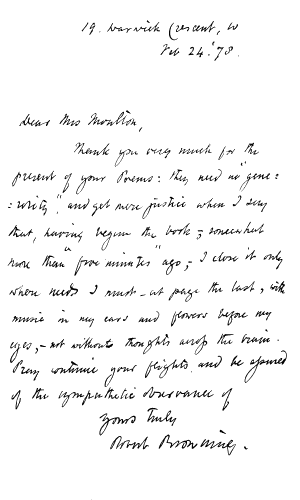 19. Warwick Crescent, W
Feb 24. '78.
Dear Mrs Moulton,
Thank you very much for the
present of your Poems: they need no "gene=
=rosity", and get mere justice when I say
that, having begun the book,- somewhat
more than "five minutes" ago,- I close it only
where needs I must - at page the last, with
music in my ears and flowers before my
eyes,- not without thoughts across the brain.
Pray continue your flights, and be assured
of the sympathetic observance of
Yours truly
Robert Browning.